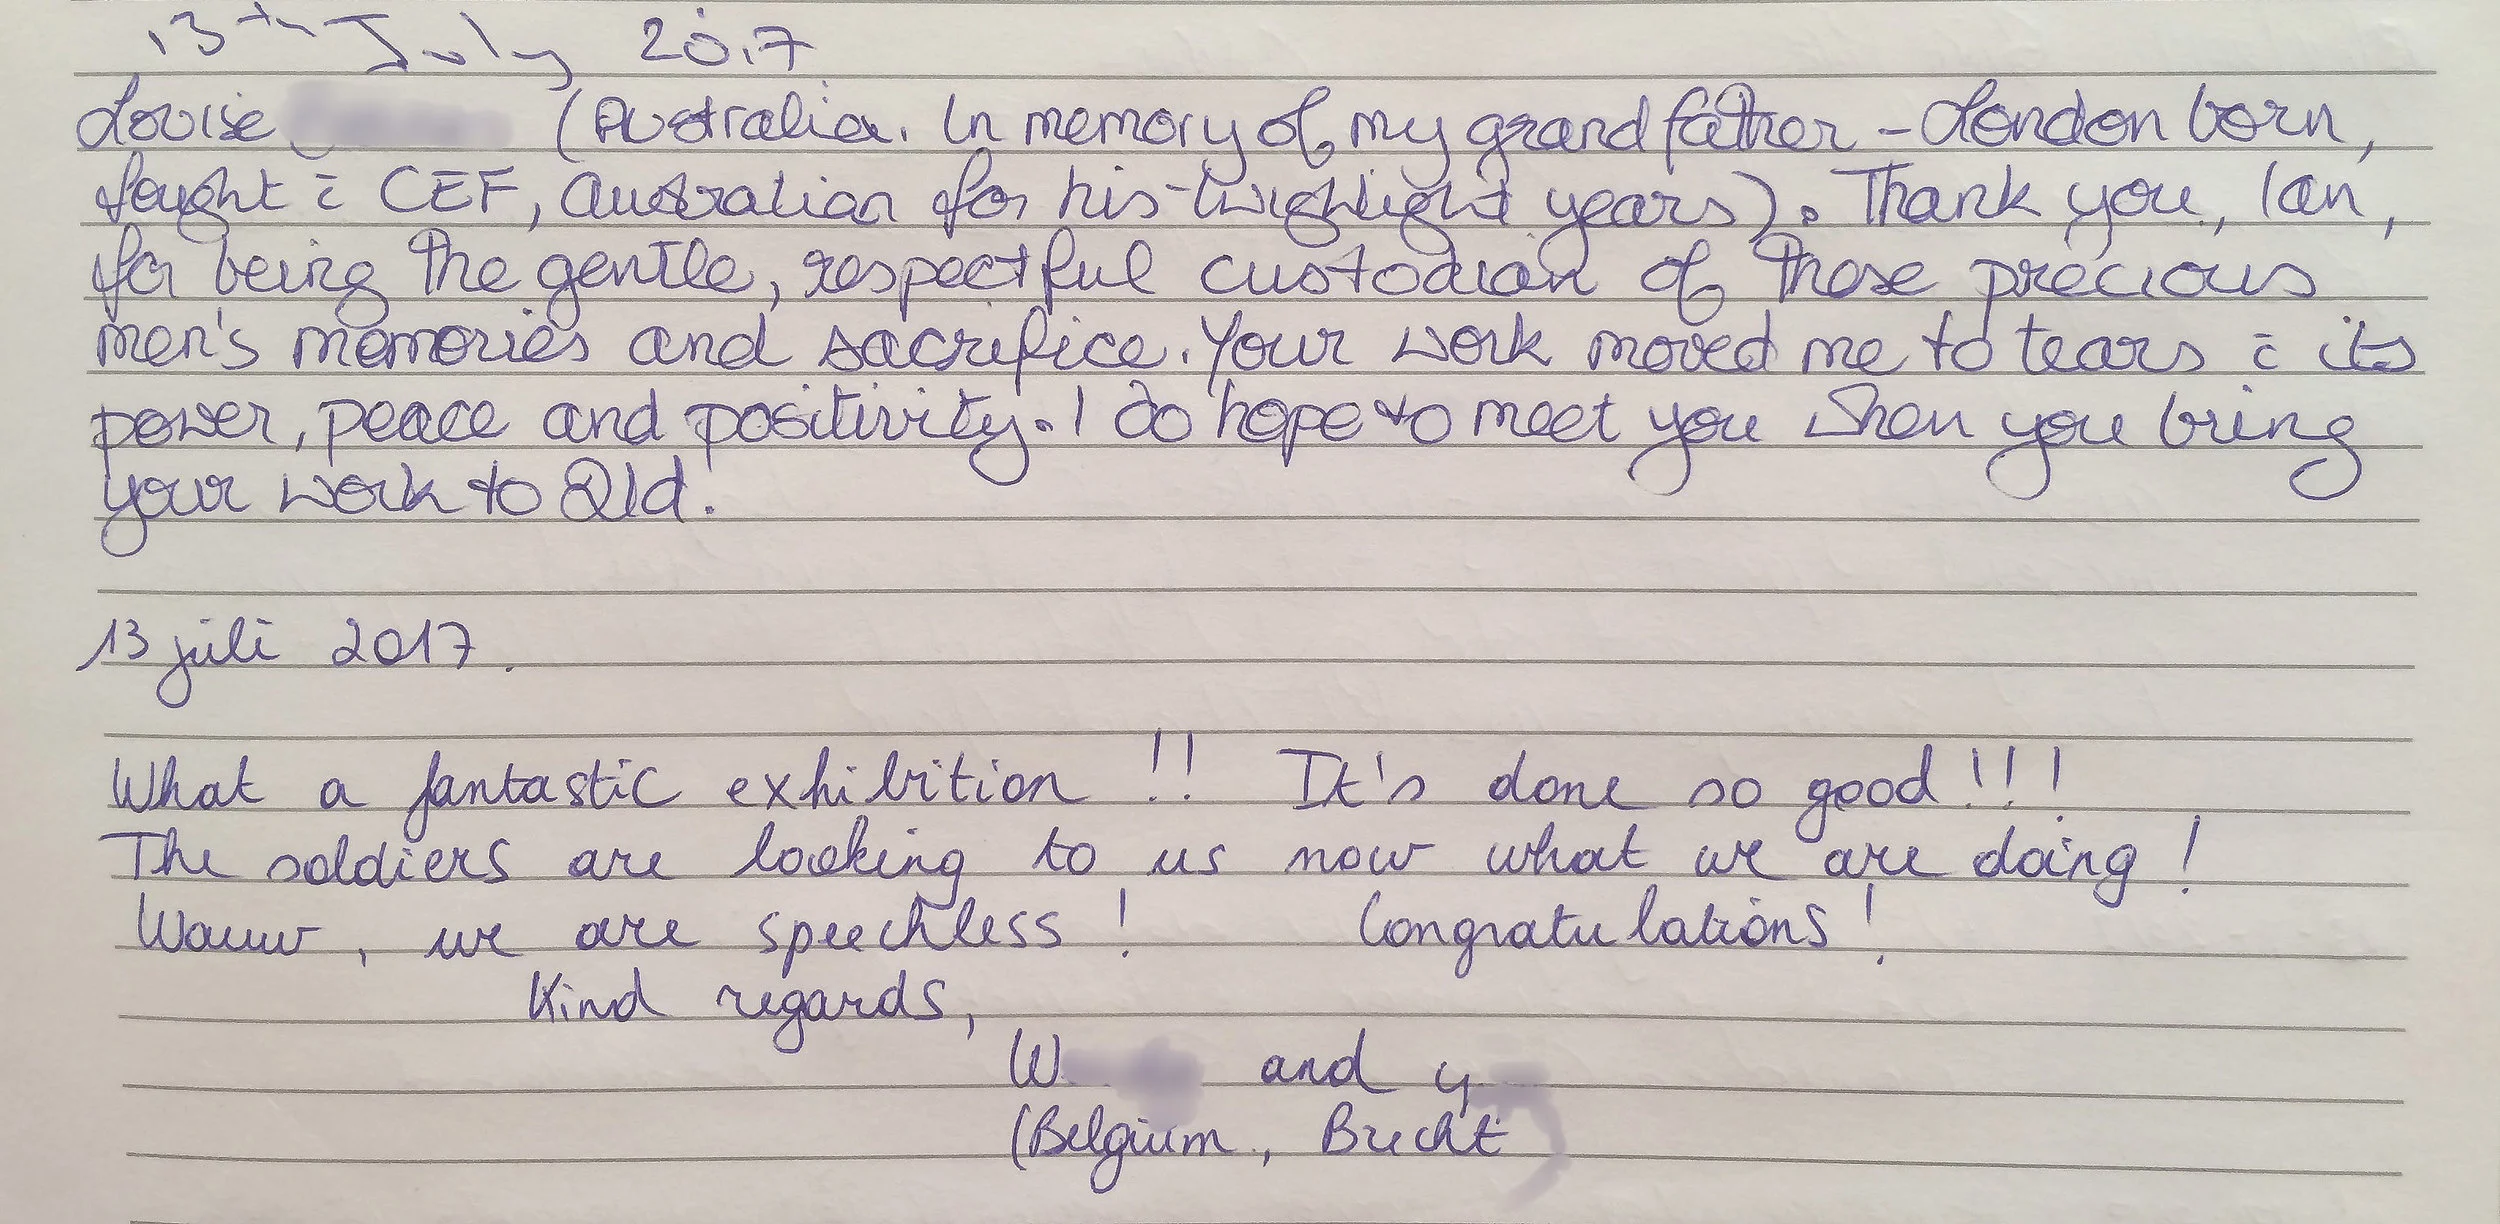 13th July 2017
Louise (Australia. In memory of my grandfather - London born,
fought c̄ CEF, Australian for his twighlight years). Thank you, Ian,
for being the gentle, respectful custodian of those precious
men's memories and sacrifice. Your work moved me to tears c̄ its
power, peace and positivity. I do hope to meet you when you bring
your work to Qld.
13 juli 2017.
What a fantastic exhibition !! It's done so good!!!
The soldiers are looking to us now what we are doing!
Wauw, we are speechless! Congratulations!
Kind regards,
W and y
(Belgium, Brecht